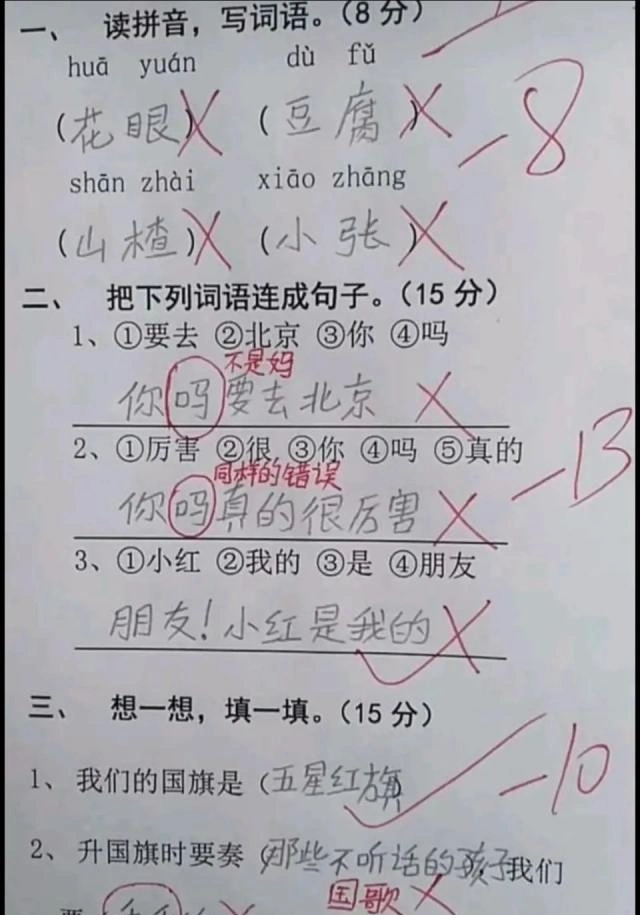 一、 读拼音，写词语。（8 分）
huā yuán dù fǔ
（花眼） （豆腐）
-8
shān zhài xiāo zhāng
（山楂） （小张）
二、 把下列词语连成句子。（15 分）
1、①要去 ②北京 ③你 ④吗
不是妈
你吗要去北京
2、①厉害 ②很 ③你 ④吗 ⑤真的
同样的错误
你吗真的很厉害
-13
3、①小红 ②我的 ③是 ④朋友
朋友！小红是我的
三、 想一想，填一填。（15 分）
1、我们的国旗是（五星红旗）
-10
2、升国旗时要奏（那些不听话的孩子），我们
国歌